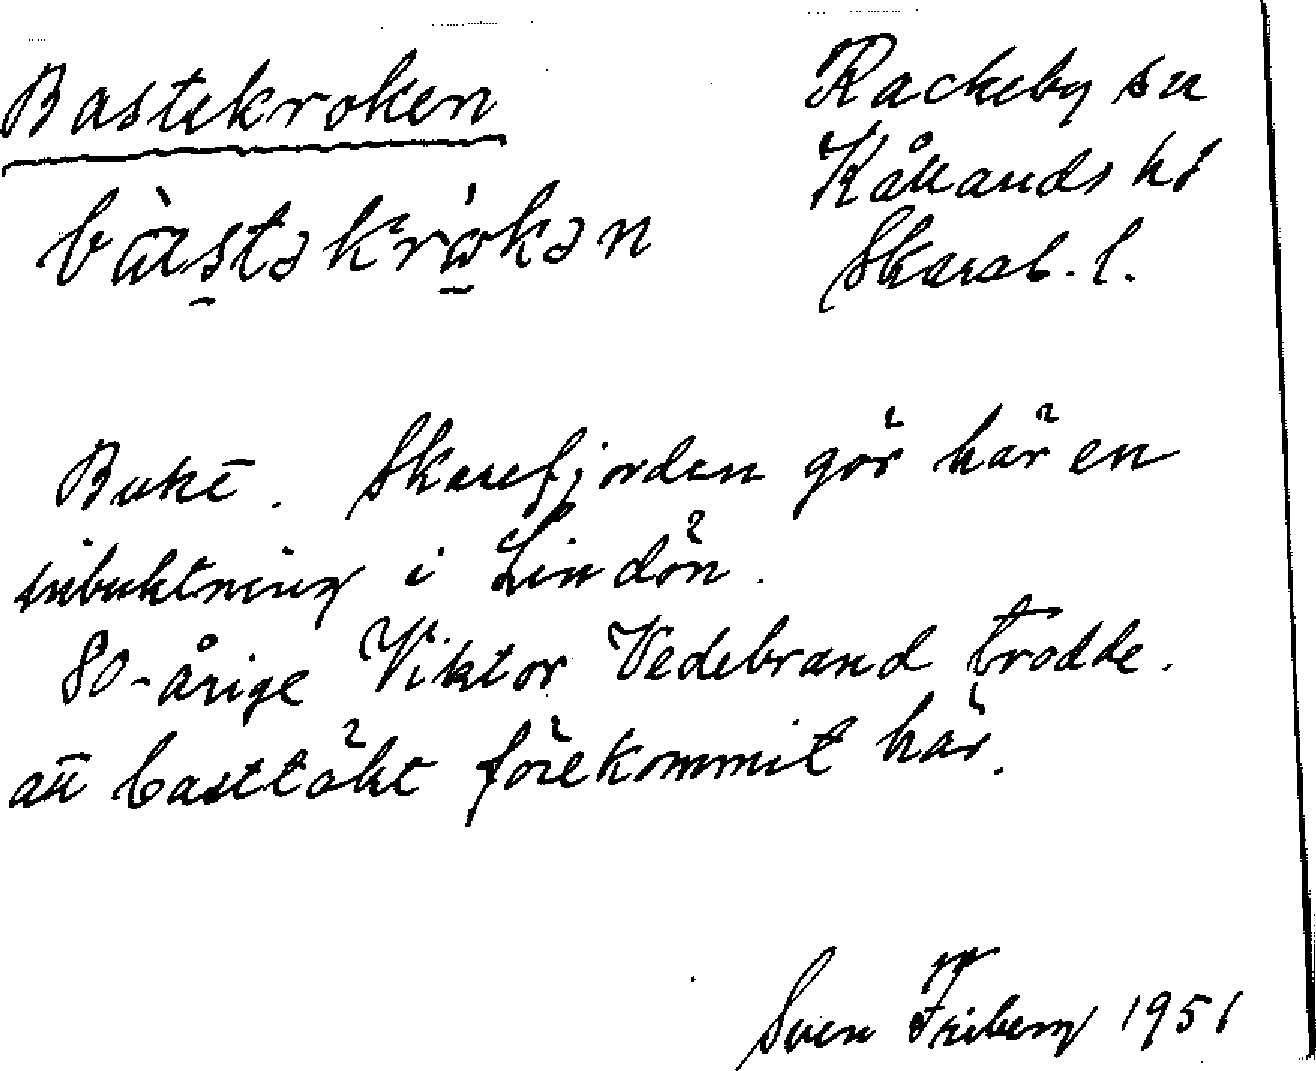 Bastekroken
Rackeby sn
Kållands hd
Skarab. l.
bàstəkrɷ̀kən
Bukt. Skarefjorden gör här en
inbuktning i Lindön.
80-årige Viktor Vedebrand trodde.
att basttäkt förekommit här.
Sven Friberg 1951